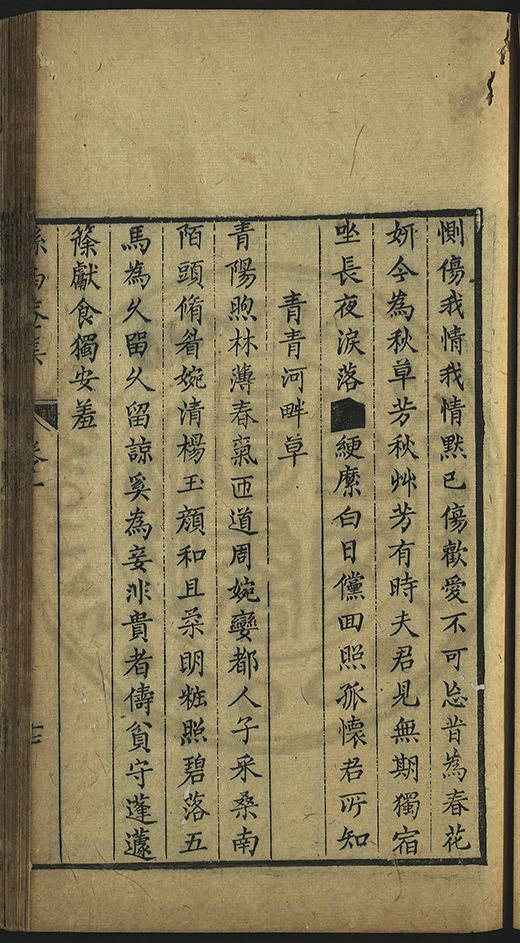 惻傷我情我情黙已傷歡愛不可忘昔為春花
妍今為秋草芳秋艸芳有時夫君見無期獨宿
坐長夜淚落綆縻白日儻回照孤懷君所知
青青河畔草
青陽煦林薄春氣匝道周婉孌都人子采桑南
陌頭脩眷婉清楊玉顔和且柔明粧照碧落五
馬為久留久留諒奚為妾非貴者儔貧守蓬藘
篠獻食獨安羞